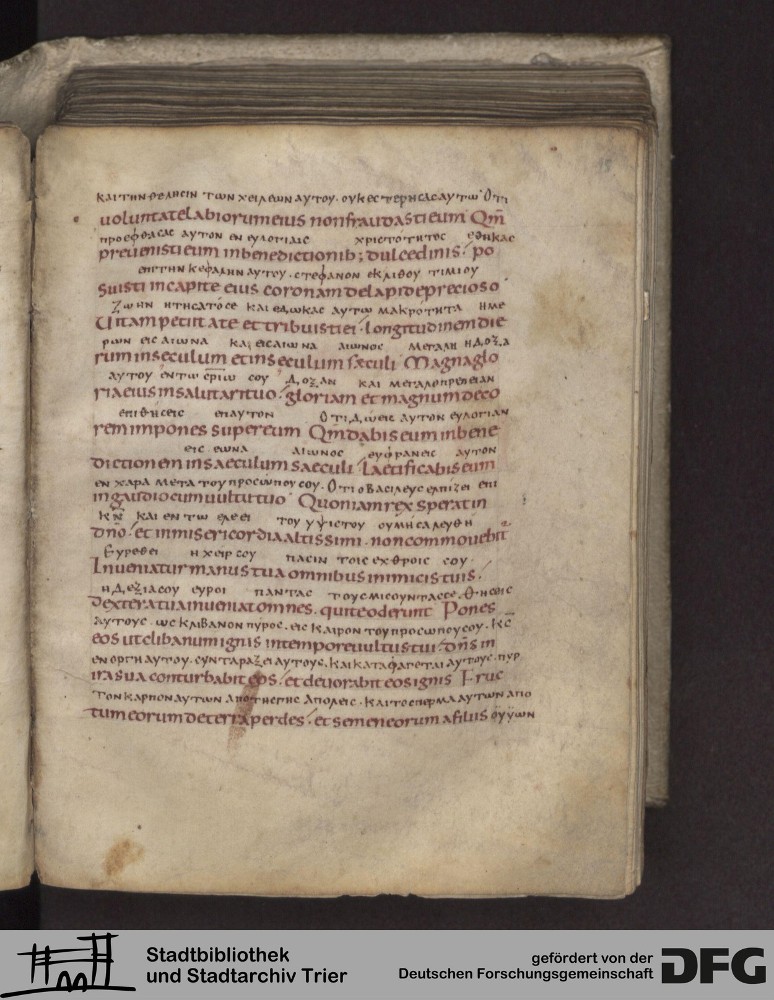 ΚΑΙ ΤΗΝ ΘΕΛΗCΙΝ ΤωΝ ΧΕΙΛΕωΝ ΑΥΤΟΥ · ΟΥΚ ΕCΤΕΡΗCΑC ΑΥΤω ΟΤΙ
uoluntate labiorum eius non fraudasti eum Qm̄
ΠΡΟΕΦΘΑCΑC ΑΥΤΟΝ ΕΝ ΕΥΛΟΓΙΑΙC ΧΡΙCΤΟΤΗΤΟC ΕΘΗΚΑC
preuenisti eum in benedictionib; dulcedinis · po
ΕΠΙ ΤΗΝ ΚΕΦΑΛΗΝ ΑΥΤΟΥ · CΤΕΦΑΝΟΝ ΕΚ ΛΙΘΟΥ ΤΙΜΙΟΥ
suisti in capite eius coronam de lapide precioso
ΖωΗΝ ΗΤΗCΑΤΟ CΕ ΚΑΙ ΕΔωΚΑC ΑΥΤω ΜΑΚΡΟΤΗΤΑ ΗΜΕ
Uitam petiit a te et tribuisti ei · longitudinem die
ΡωΝ ΕΙC ΑΙωΝΑ ΚΑΙ ΕΙC ΑΙωΝΑ ΑΙωΝΟC ΜΕΓΑΛΗ Η ΔΟΞΑ
rum in seculum et in seculum sæculi Magna glo
ΑΥΤΟΥ ΕΝ Τω CΟΥ ΔΟΞΑΝ ΚΑΙ ΜΕΓΑΛΟΠΡΕΠΕΙΑΝ
ria eius in salutari tuo · gloriam et magnum deco
ΕΠΙΘΗCΕΙC ΕΠ ΑΥΤΟΝ ΟΤΙ ΔωCΕΙC ΑΥΤΟΝ ΕΥΛΟΓΙΑΝ
rem impones super eum Qm̄ dabis eum in bene
ΕΙC ΕωΝΑ ΑΙωΝΟC ΕΥΦΡΑΝΕΙC ΑΥΤΟΝ
dictionem in saeculum saeculi · Laetificabis eum
ΕΝ ΧΑΡΑ ΜΕΤΑ ΤΟΥ ΠΡΟCωΠΟΥ CΟΥ · ΟΤΙ Ο ΒΑCΙΛΕΥC ΕΛΠΙΖΕΙ ΕΠΙ
in gaudio cum uultu tuo Quoniam rex sperat in
Κ̄Ν̄ ΚΑΙ ΕΝ Τω ΕΛΕΕΙ ΤΟΥ ΥΨΙCΤΟΥ ΟΥ ΜΗ CΑΛΕΥΘΗ
dn̄o · et in misericordia altissimi · non commouebit
ΕΥΡΕΘΕΙ Η ΧΕΙΡ CΟΥ ΠΑCΙΝ ΤΟΙC ΕΧΘΡΟΙC CΟΥ ·
Inueniatur manus tua omnibus inimicis tuis ·
Η ΔΕΞΙΑ CΟΥ ΕΥΡΟΙ ΠΑΝΤΑC ΤΟΥC ΜΙCΟΥΝΤΑC CΕ · ΘΗCΕΙC
Dextera tua inueniat omnes · qui te oderunt Pones
ΑΥΤΟΥC · ωC ΚΛΙΒΑΝΟΝ ΠΥΡΟC · ΕΙC ΚΑΙΡΟΝ ΤΟΥ ΠΡΟCωΠΟΥ CΟΥ · Κ̄C̄
eos ut clibanum ignis in tempore uultus tui · dn̄s in
ΕΝ ΟΡΓΗ ΑΥΤΟΥ · CΥΝΤΑΡΑΞΕΙ ΑΥΤΟΥC · ΚΑΙ ΚΑΤΑΦΑΓΕΤΑΙ ΑΥΤΟΥC · ΠΥΡ
ira sua conturbabit eos · et deuorabit eos ignis Fruc
ΤΟΝ ΚΑΡΠΟΝ ΑΥΤωΝ ΑΠΟ ΤΗC ΓΗC ΑΠΟΛΕΙC · ΚΑΙ ΤΟ CΠΕΡΜΑ ΑΥΤωΝ ΑΠΟ
tum eorum de terra perdes · et semen eorum a filiis ΟΥ ΥΙωΝ
Stadtbibliothek
und Stadtarchiv Trier
gefördert von der
Deutschen Forschungsgemeinschaft
DFG